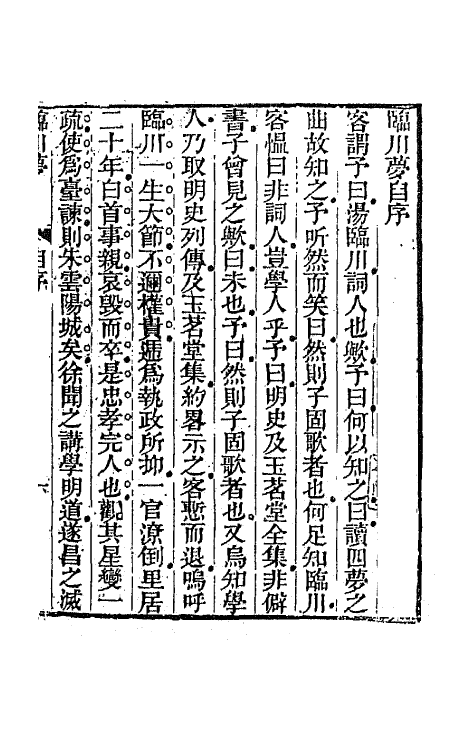 臨川夢自序
客謂予曰湯臨川詞人也歟予曰何以知之曰讀四夢之
曲故知之予听然而笑曰然則子固歌者也何足知臨川
客慍曰非詞人豈學人乎予曰明史及玉茗堂全集非僻
書子曾見之歟曰未也予曰然則子固歌者也又烏知學
人乃取明史列傳及玉茗堂集約畧示之客慙而退嗚呼
臨川一生大節不邇權貴遞爲執政所抑一官潦倒里居
二十年白首事親哀毀而卒是忠孝完人也觀其星變一
疏使爲臺諫則朱雲陽城矣徐聞之講學明道遂昌之滅
臨川夢
自序
六